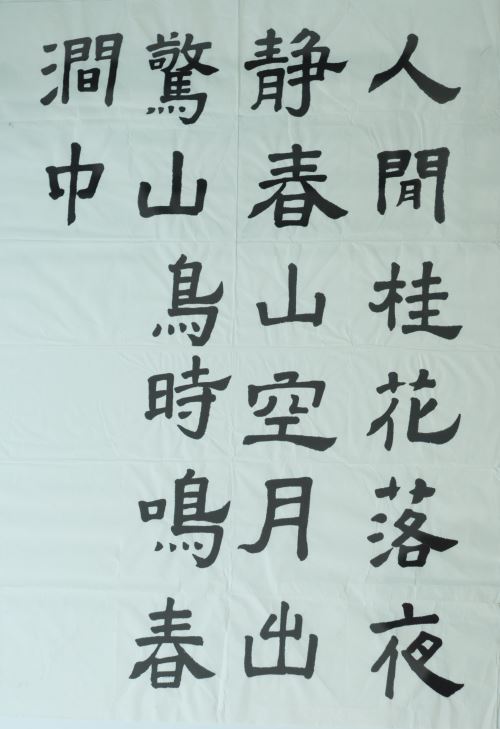 人閒桂花落夜
静春山空月出
驚山鳥時鳴春
澗巾